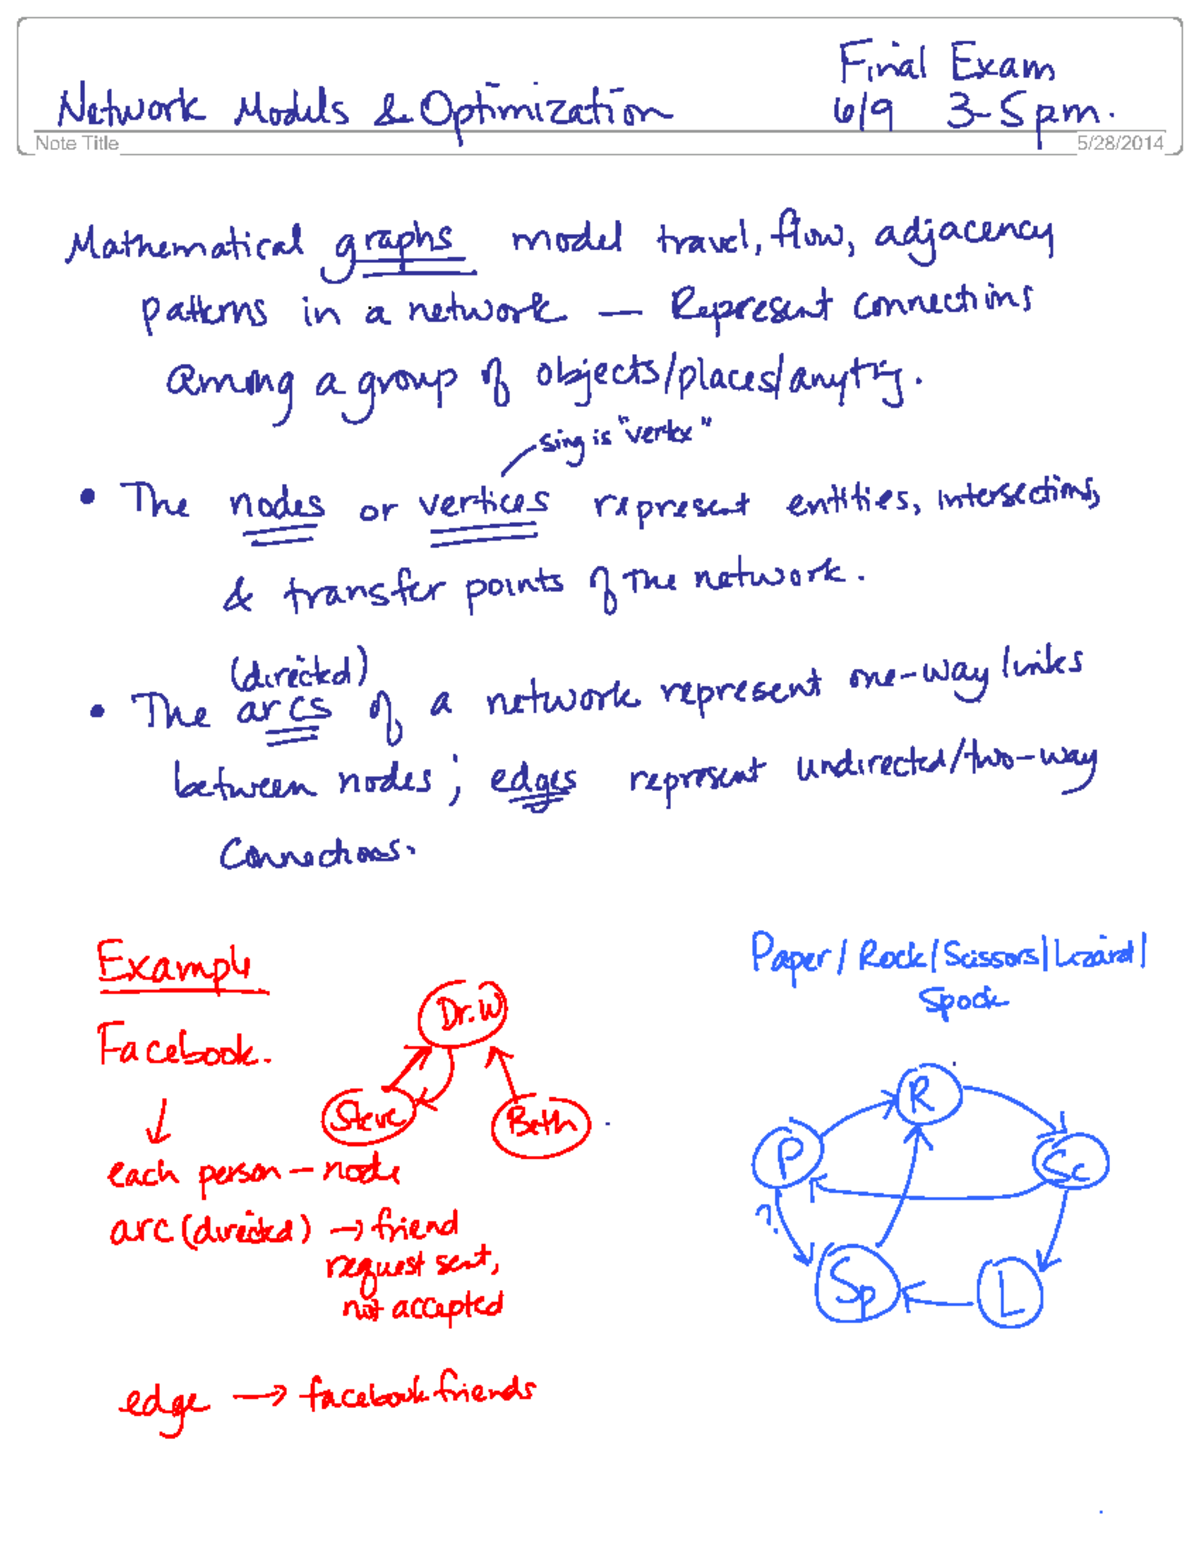 Final Exam
Network Models & Optimization 6/9 3-5 pm.
Note Title 5/28/2014
Mathematical graphs model travel, flow, adjacency
patterns in a network — Represent connections
among a group of objects/places/anythg.
sing is "vertex"
• The nodes or vertices represent entities, intersections,
& transfer points of the network.
(directed)
• The arcs of a network represent one-way links
between nodes; edges represent undirected/two-way
connections.
Example
Paper/Rock/Scissors/Lizard/
Spock
Facebook.
Dr. W
Steve
Beth
↓
each person - node
arc (directed) → friend
request sent,
not accepted
edge → facebook friends
R
P
Sc
?
Sp
L